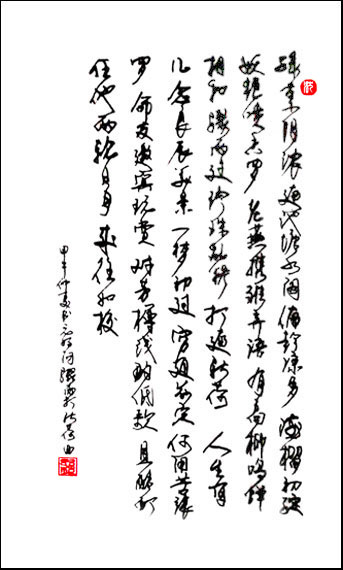 绿葉阴浓 遍池塘水阁 偏趁凉多 海榴初绽
妖艳喷香罗 老燕携雏弄语 有高柳鸣蝉
相和 骤雨过 珍珠乱糁 打遍新荷 人生有
几 念良辰美景 一梦初过 穷通前定 何用苦张
罗 命友邀宾玩赏 对芳樽浅酌低歌 且酩酊
任他两轮日月 来往如梭
甲午仲夏书元好问骤雨打新荷曲